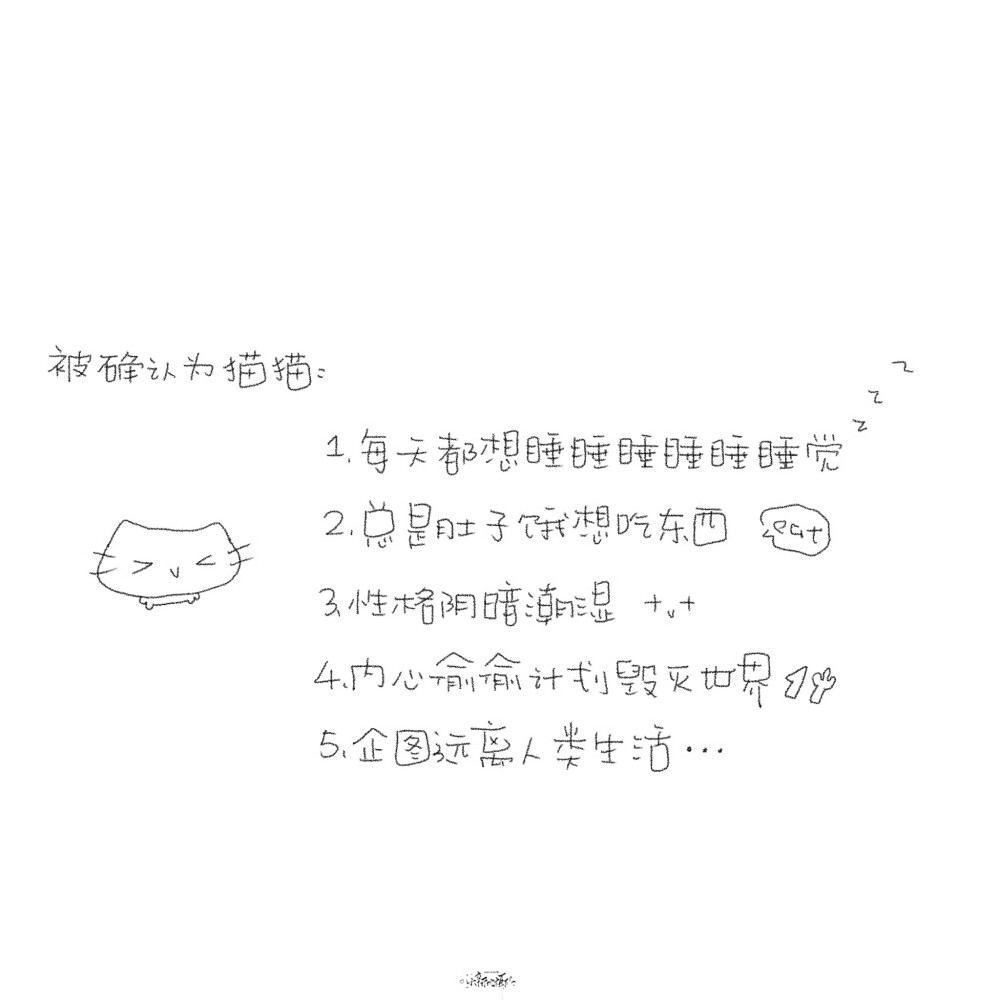 被确认为猫猫:
1.每天都想睡睡睡睡睡睡觉 z z z
2.总是肚子饿想吃东西 eat
3.性格阴暗潮湿 +v+
4.内心偷偷计划毁灭世界
5.企图远离人类生活…